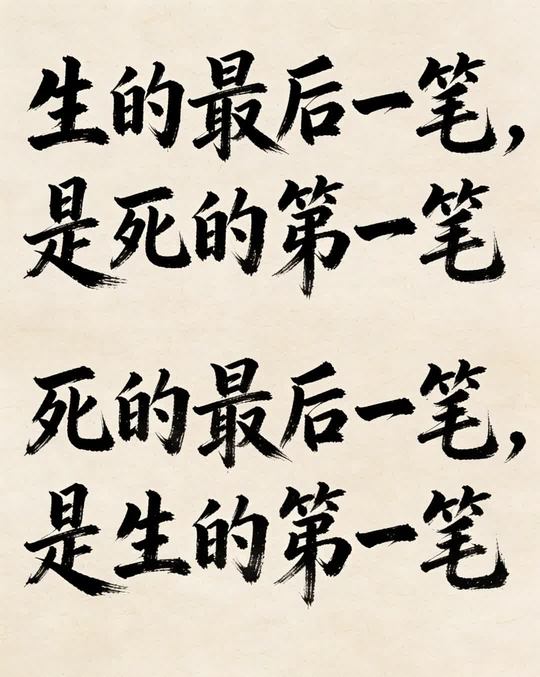 生的最后一笔，
是死的第一笔
死的最后一笔，
是生的第一笔